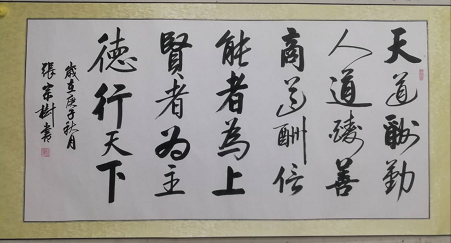 天道酬勤
人道酬善
商道酬信
能者為上
賢者為主
德行天下
歲在庚子秋月
張宗樹書